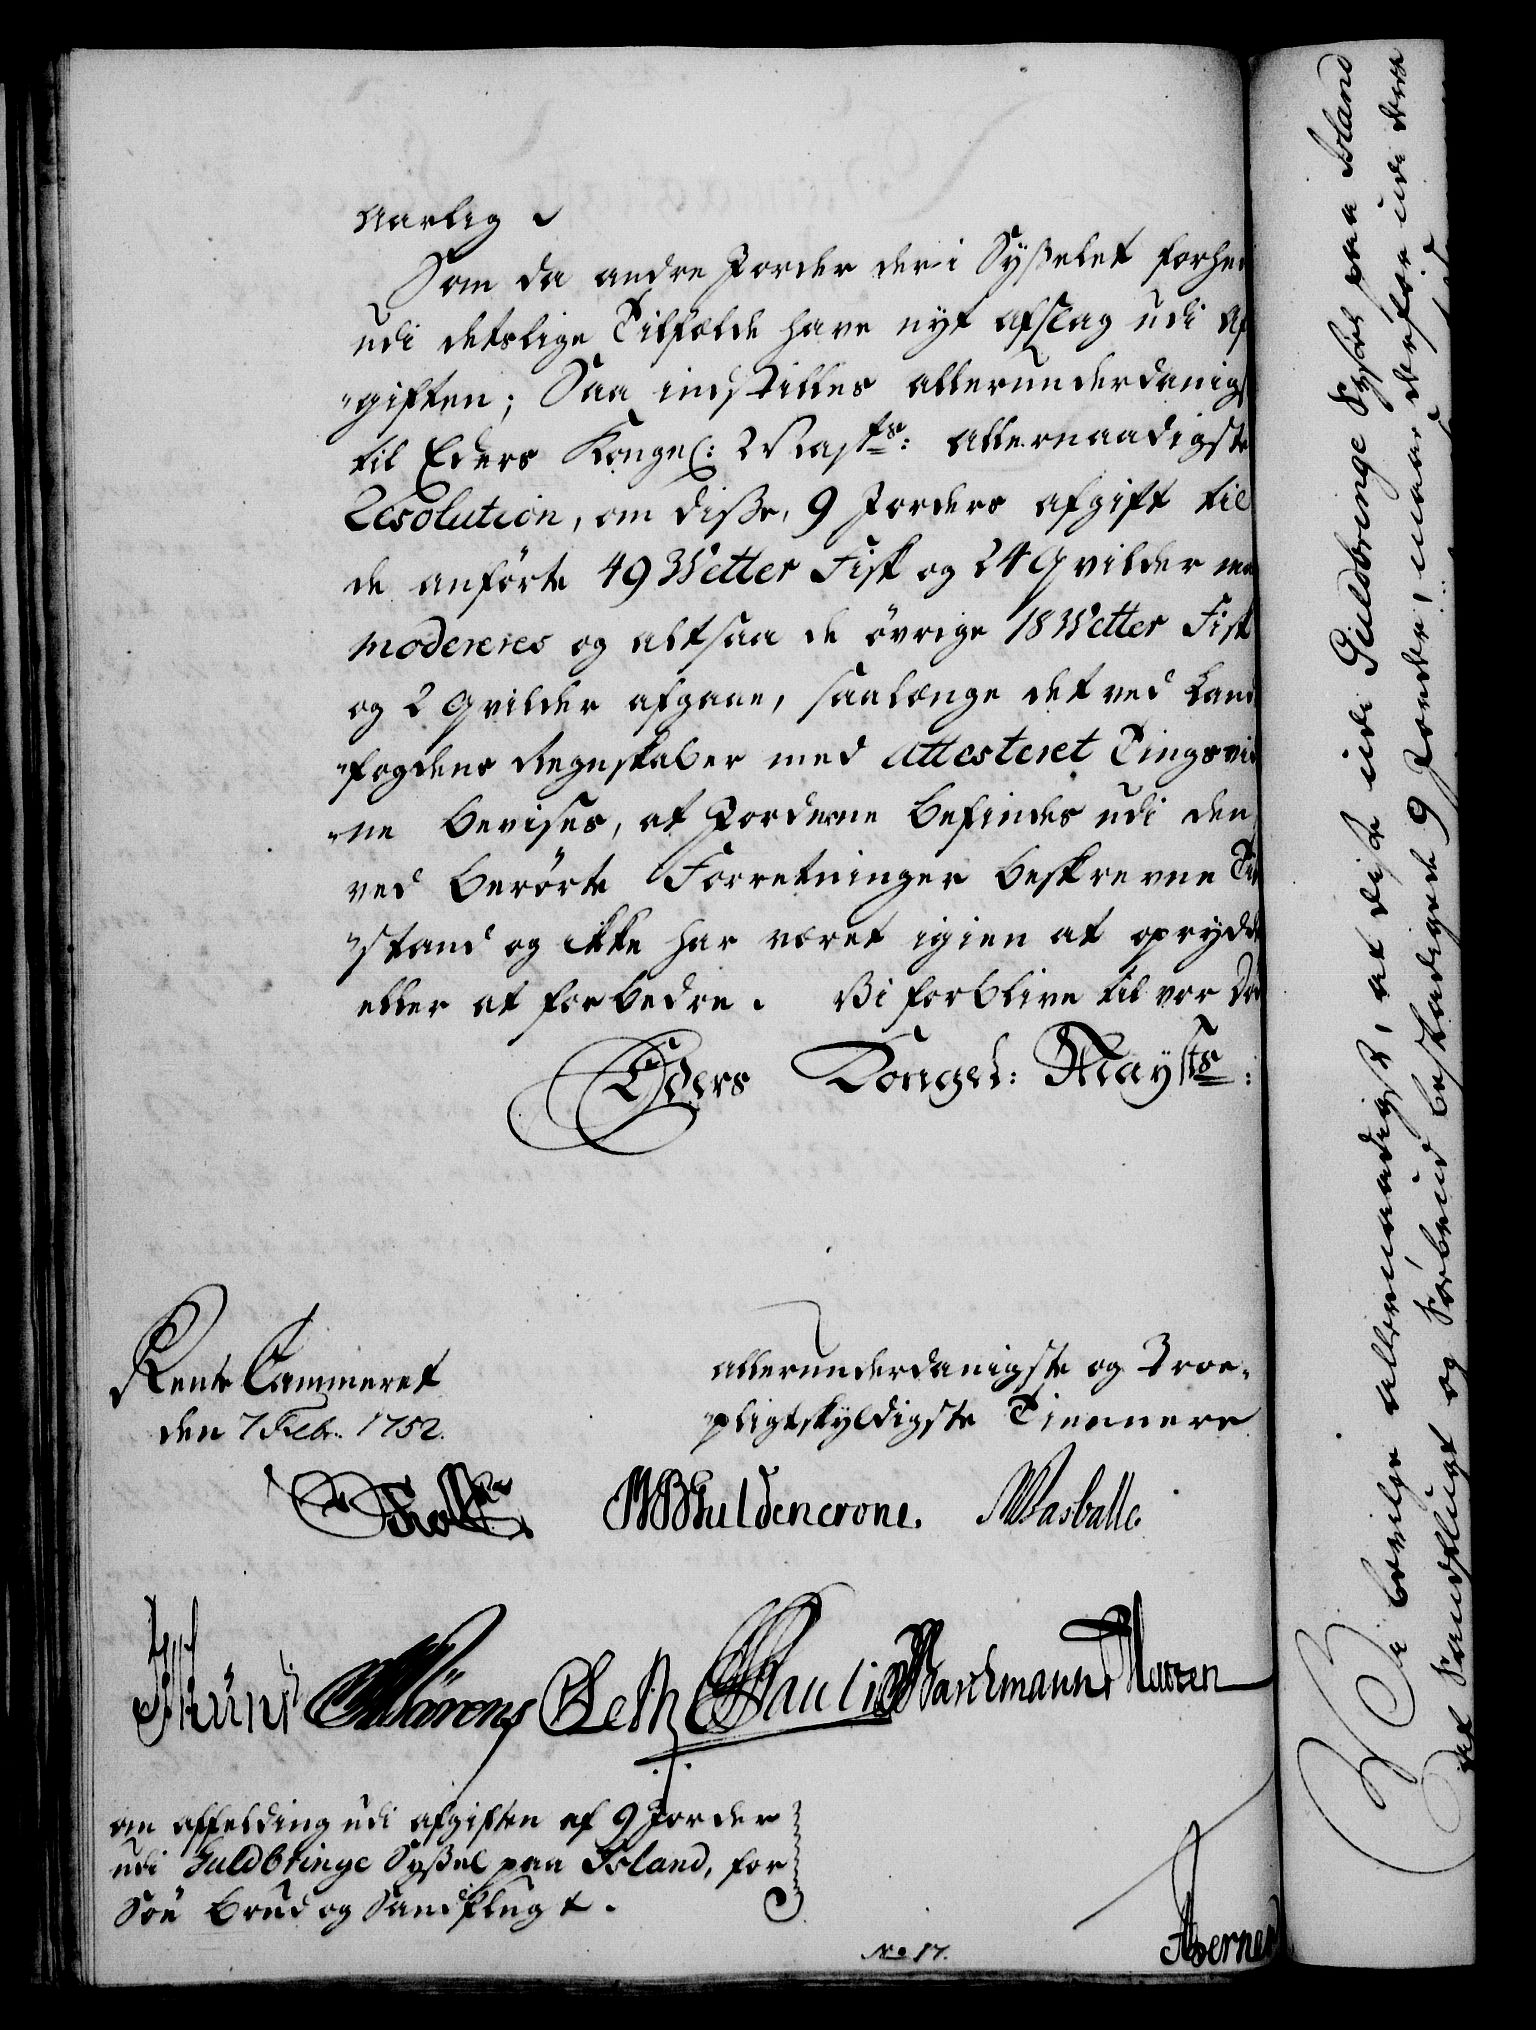 Aarlig.
Som da andre Jorder der i Sysselet forhen
udi detslige Tilfælde have nyt afslag udi Af
"giften; Saa indstilles allerunderdanigst
til Eders Kongel: Mayts: allernaadigste
Resolution, om disse 9 Jorders afgift til
de anførte 49 Wetter Fisk og 24 Qvilder maa
modereres og altsaa de øvrige 18 Wetter Fisk
og 2 Qvilder afgaae, saalænge det ved Land
"fogdens Regnskaber med attesteret Tingsvid
"ne bevises, at Jorderne befindes udi den
ved berørte Forretninger beskrevne Til
"stand og ikke har været igien at oprydde
eller at forbedre. Vi forblive til vor Død
Eders Kongel: Mayts:
Rente Cammeret
den 7 Febr. 1752.
allerunderdanigste og Troe-
"pligtskyldigste Tienere
Holst
Guldencrone. Wasballe.
Pauli
om affelding udi afgiften af 9 Jorder
udi Guldbringe Syssel paa Island, for
Søe Brud og Sandflugt.
No 17.
Berner
Vi bevilge allernaadigst, at disse udi Guldbringe Syssel paa Island
af Sandflugt og Søebrud beskadigede 9 Jorder, maae derfor udi deres